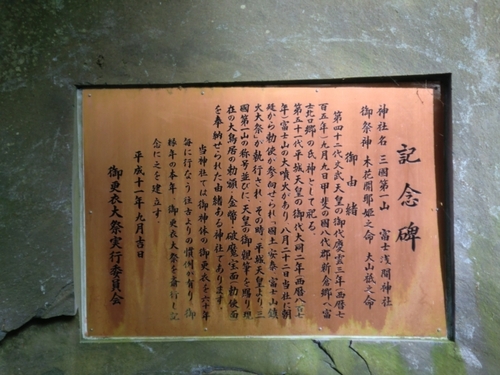 記念碑
神社名 三國第一山 富士浅間神社
御祭神 木花開耶姫之命 大山祇之命
御由緒
第四十二代文武天皇の御代慶雲三年西暦七
百五年一月九日甲斐の國八代郡新倉郷へ富
士北口郷の氏神として祀る。
第五十一代平城天皇の御代大同二年西暦八百七
年富士山の大噴火があり、八月二十二日当社に朝
廷から勅使が参向せられ、國土安泰富士山鎮
火大祭が執行され、その時、平城天皇より三
國第一山の称号並びに、天皇の御親筆を賜り現
在の大鳥居の勅額、金幣、破魔、宝面勅使面
を奉納せられた由緒ある神社であります。
当神社では御神体の御更衣を六十年
毎に行なう往古よりの慣例が有り、御
縁年の本年、御更衣大祭を斎行し記
念に之を建立す。
平成十一年九月吉日
御更衣大祭実行委員会